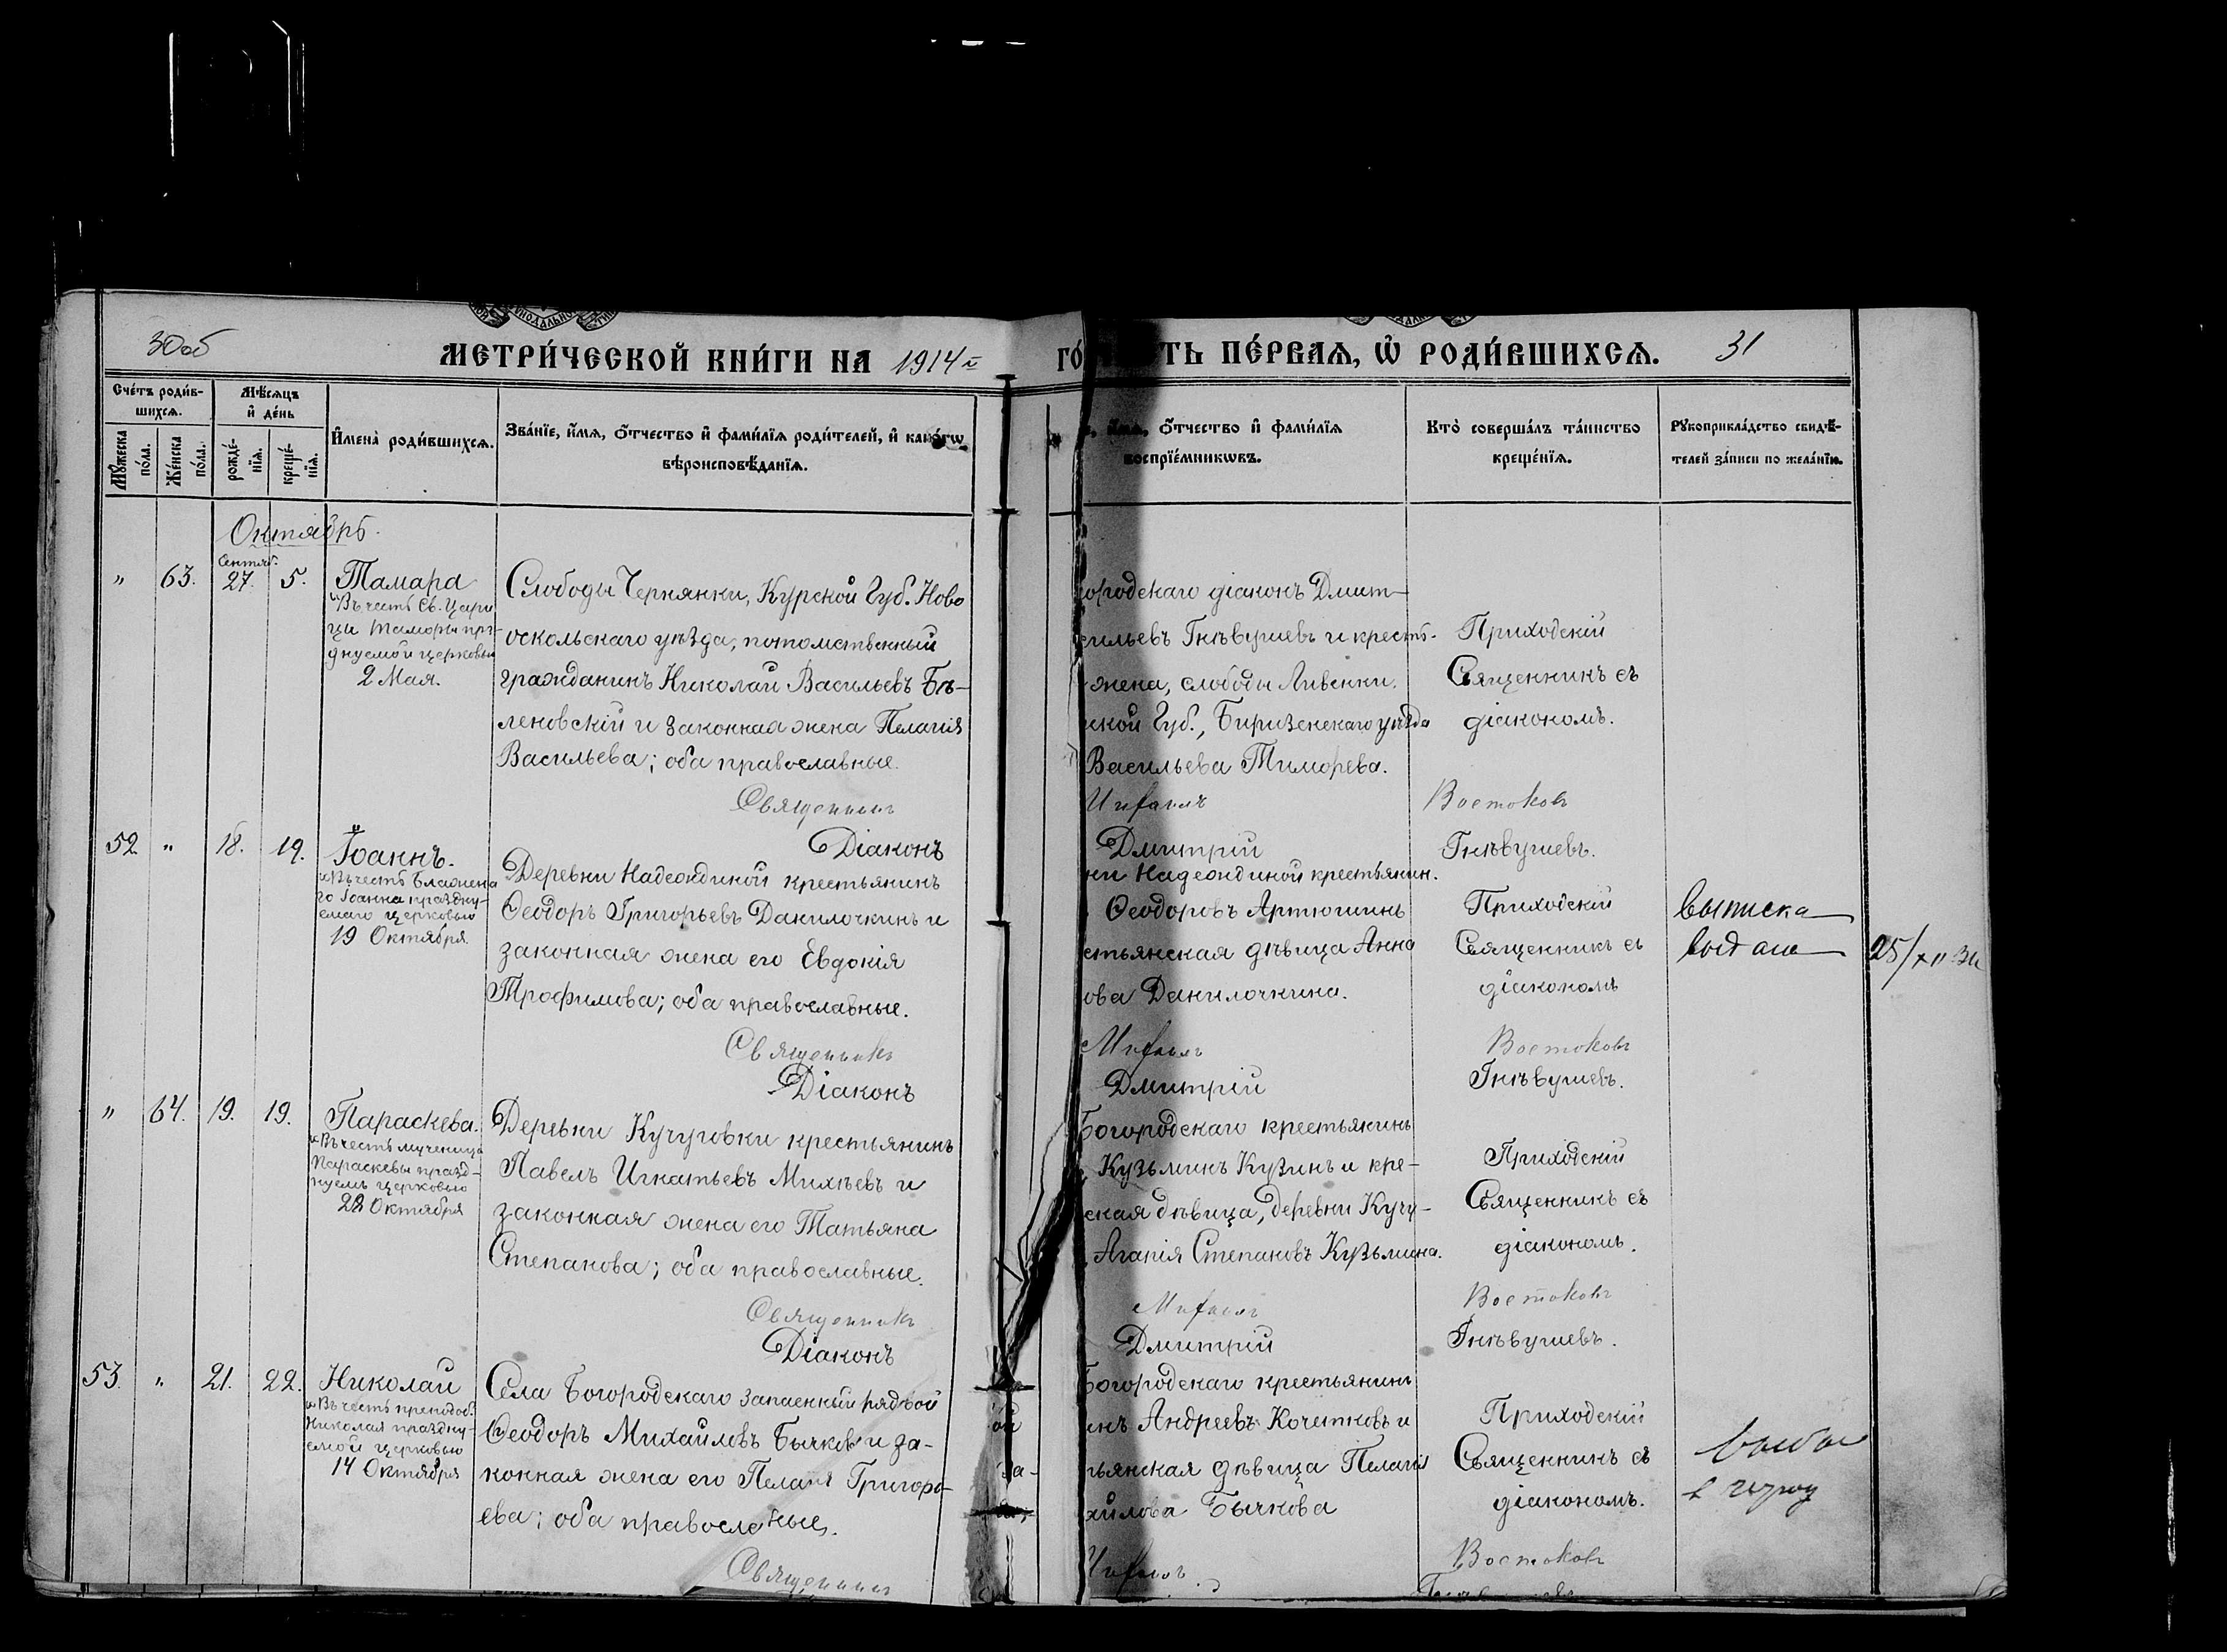 30об
МЕТРИ́ЧЕСКОЙ КНИ́ГИ НА 1914 й
ГО́
ТЬ ПЕ́РВАЯ, Ѡ҆ РОДИ́ВШИХСЯ.
31
Сче́тъ роди́в-
шихся.
Мѣ́сяцъ
и҆ де́нь
Му́жеска
по́ла.
Же́нска
по́ла.
рожде́-
нїя.
креще́-
нїя.
И҆мена̀ роди́вшихся.
Зва́нїе, и҆́мя, ѻ҆́тчество и҆ фами́лїя роди́телей, и҆ како́гѡ
вѣроисповѣ́данїя.
и҆́мя, ѻ҆́тчество и҆ фами́лїя
воспрїе́мникѡвъ.
Кто̀ соверша́лъ та́инство
креще́нїя.
Рꙋкоприкла́дство свидѣ́-
телей за́писи по жела́нїю.
Октябрь.
Сентяб.
" 63. 27. 5. Тамара
"Въ честь Св. Цари
цы Тамары пра-
днуемой церковью
2 Мая.
Слободы Чернянки, Курской Губ. Ново
оскольскаго уѣзда, потомственный
гражданинъ Николай Васильевъ Бѣ-
леновскій и законная жена Пелагія
Васильева; оба православные.
Священникъ
Діаконъ
городскаго діаконъ Дмит-
сильевъ Гнѣвушевъ и кресть-
жена, слободы Ливенки.
ской Губ., Бирюзенскаго уѣзда
Васильева Тиморева.
Михаилъ
Дмитрій
Приходскій
Священникъ съ
діакономъ.
Востоковъ
Гнѣвушевъ.
52 " 18. 19. Іоаннъ.
"Въ честь Блаженна
го Іоанна праздну-
емаго церковью
19 Октября.
Деревни Надеждиной крестьянинъ
Ѳеодоръ Григорьевъ Данилочкинъ и
законная жена его Евдокія
Трофимова; оба православные.
Священникъ
Діаконъ
ни Надеждиной крестьянин.
Ѳеодоровъ Артюшинъ
стьянская дѣвица Анна
ова Данилочкина.
Михаилъ
Дмитрій
Приходскій
Священникъ съ
діакономъ
Востоковъ
Гнѣвушевъ.
выписка
25/XII
" 64. 19. 19. Параскева.
"Въ честь мученицы
Параскевы празд-
нуемъ церковью
28 Октября
Деревни Кучуговки крестьянинъ
Павелъ Игнатьевъ Михѣевъ и
законная жена его Татьяна
Степанова; оба православные.
Священникъ
Діаконъ
Богородскаго крестьянинъ
Кузьминъ Кузинъ и кре-
ская дѣвица, деревни Кучу-
Агапія Степановъ Кузьмина.
Михаилъ
Дмитрій
Приходскій
Священникъ съ
діакономъ.
Востоковъ
Гнѣвушевъ.
53. " 21. 22. Николай
"Въ честь преподоб.
Николая праздну-
емой церковью
14 Октября
Села Богородскаго запасный рядвой
Ѳеодоръ Михайловъ Бычковъ и за-
конная жена его Пелагія Григорь-
ева; оба православные.
Священникъ
Богородскаго крестьянинъ
инъ Андреевъ Кочетковъ и
тьянская дѣвица Пелагія
хайлова Бычкова
Михаилъ
Приходскій
Священникъ съ
діакономъ.
Востоковъ